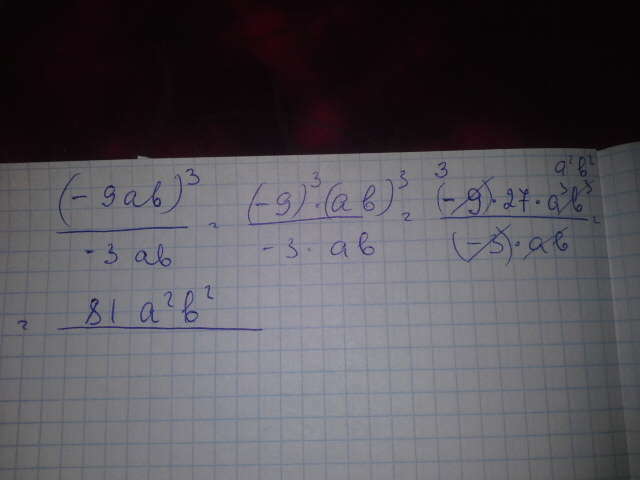 (-9ab)³ / -3ab = (-9)³·(ab)³ / -3·ab = 3 a²b² (-9)·27·a³b³ / (-3)·ab =
= 81 a²b²